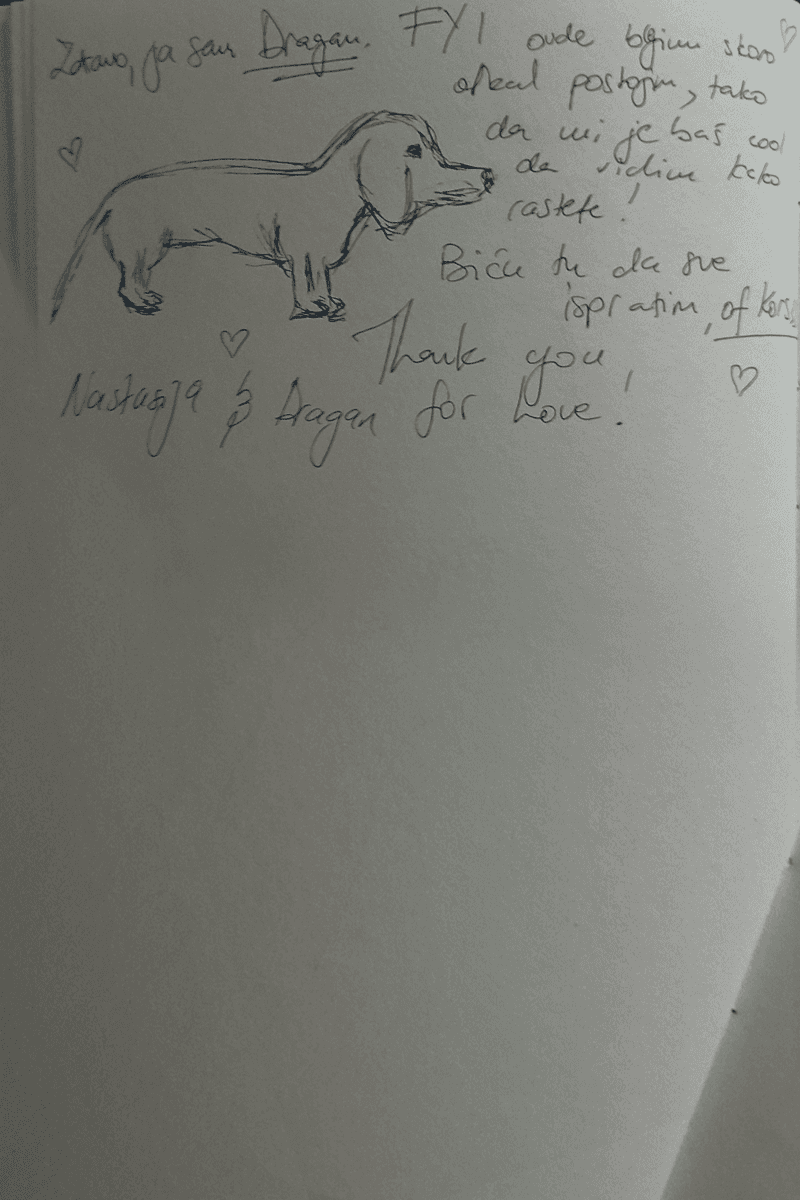 Zdravo, ja sam Dragan. FYI ovde bljim skoro
otkad postojim, tako
da mi je baš cool
da vidim kako
rastete!
Biću tu da sve
ispratim, of kors.
Thank you,
Nastasja & Dragan for Love!